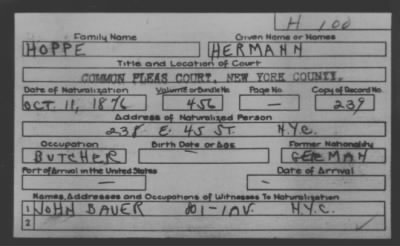 H 100
Family Name Given Name or Names
HOPPE HERMANN
Title and Location of Court
COMMON PLEAS COURT, NEW YORK COUNTY.
Date of Naturalization Volume or Bundle No. Page No. Copy of Record No.
OCT. 11, 1876 456 — 239
Address of Naturalized Person
238 E. 45 ST. N.Y.C.
Occupation Birth Date or Age Former Nationality
BUTCHER — GERMAN
Port of Arrival in the United States Date of Arrival
— -
Names, Addresses and Occupations of Witnesses To Naturalization
1 JOHN BAUER 801-1 AV. N.Y.C.
2